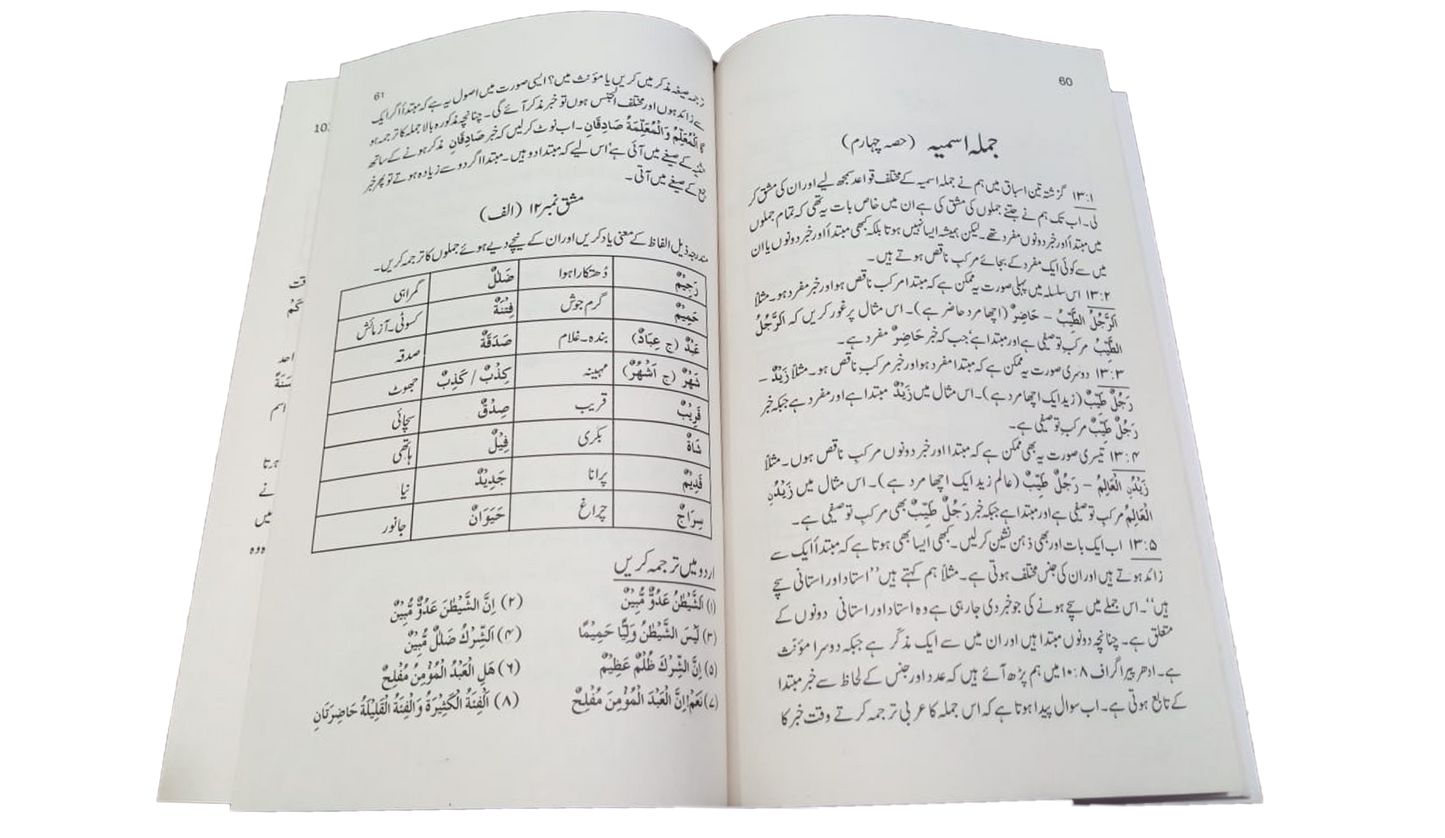 60
جملہ اسمیہ (حصہ چہارم)
۱۳:۱ گزشتہ تین اسباق میں ہم نے جملہ اسمیہ کے مختلف قواعد سمجھ لیے اور ان کی مشق کر
لی۔ اب تک ہم نے جتنے جملوں کی مشق کی ہے ان میں خاص بات یہ تھی کہ تمام جملوں
میں مبتدأ اور خبر دونوں مفرد تھے۔ لیکن ہمیشہ ایسا نہیں ہوتا بلکہ کبھی مبتدأ اور خبر دونوں یا ان
میں سے کوئی ایک مفرد کے بجائے مرکب ناقص ہوتے ہیں۔
۱۳:۲ اس سلسلہ میں پہلی صورت یہ ممکن ہے کہ مبتدا مرکب ناقص ہو اور خبر مفرد ہو۔ مثلاً
اَلرَّجُلُ الطَّيِّبُ – حَاضِرٌ (اچھا مرد حاضر ہے)۔ اس مثال پر غور کریں کہ اَلرَّجُلُ
الطَّيِّبُ مرکب توصیفی ہے اور مبتدا ہے' جب کہ خبر حَاضِرٌ مفرد ہے۔
۱۳:۳ دوسری صورت یہ ممکن ہے کہ مبتدا مفرد ہو اور خبر مرکب ناقص ہو۔ مثلاً زَيْدٌ –
رَجُلٌ طَيِّبٌ (زید ایک اچھا مرد ہے)۔ اس مثال میں زَيْدٌ مبتدا ہے اور مفرد ہے جبکہ خبر
رَجُلٌ طَيِّبٌ مرکب توصیفی ہے۔
۱۳:۴ تیسری صورت یہ بھی ممکن ہے کہ مبتدا اور خبر دونوں مرکب ناقص ہوں۔ مثلاً
زَيْدُنِ الْعَالِمُ – رَجُلٌ طَيِّبٌ (عالم زید ایک اچھا مرد ہے)۔ اس مثال میں زَيْدُنِ
الْعَالِمُ مرکب توصیفی ہے اور مبتدا ہے جبکہ خبر رَجُلٌ طَيِّبٌ بھی مرکب توصیفی ہے۔
۱۳:۵ اب ایک بات اور بھی ذہن نشین کر لیں۔ کبھی ایسا بھی ہوتا ہے کہ مبتدأ ایک سے
زائد ہوتے ہیں اور ان کی جنس مختلف ہوتی ہے۔ مثلاً ہم کہتے ہیں "استاد اور استانی سچے
ہیں"۔ اس جملے میں سچے ہونے کی جو خبر دی جا رہی ہے وہ استاد اور استانی دونوں کے
متعلق ہے۔ چنانچہ دونوں مبتدا ہیں اور ان میں سے ایک مذکّر ہے جبکہ دوسرا مؤنث
ہے۔ ادھر پیراگراف ۱۰:۸ میں ہم پڑھ آئے ہیں کہ عدد اور جنس کے لحاظ سے خبر مبتدا
کے تابع ہوتی ہے۔ اب سوال پیدا ہوتا ہے کہ اس جملہ کا عربی ترجمہ کرتے وقت خبر کا
61
ترجمہ صیغہ مذکر میں کریں یا مؤنث میں؟ ایسی صورت میں اصول یہ ہے کہ مبتدأ اگر ایک
سے زائد ہوں اور مختلف الجنس ہوں تو خبر مذکر آئے گی۔ چنانچہ مذکورہ بالا جملہ کا ترجمہ ہو
گا اَلْمُعَلِّمُ وَالْمُعَلِّمَةُ صَادِقَانِ۔ اب نوٹ کر لیں کہ خبر صَادِقَانِ مذکر ہونے کے ساتھ
تثنیہ کے صیغے میں آئی ہے' اس لیے کہ مبتدا دو ہیں۔ مبتدا اگر دو سے زیادہ ہوتے تو پھر خبر
جمع کے صیغے میں آتی۔
مشق نمبر ۱۲ (الف)
مندرجہ ذیل الفاظ کے معنی یاد کریں اور ان کے نیچے دیے ہوئے جملوں کا ترجمہ کریں۔
رَجِيْمٌ دُھتکارا ہوا ضَلٰلٌ گمراہی
حَمِيْمٌ گرم جوش فِتْنَةٌ کسوٹی۔ آزمائش
عَبْدٌ (ج عِبَادٌ) بندہ۔ غلام صَدَقَةٌ صدقہ
شَهْرٌ (ج اَشْهُرٌ) مہینہ كِذْبٌ / كَذِبٌ جھوٹ
قَرِيْبٌ قریب صِدْقٌ سچائی
شَاةٌ بکری فِيْلٌ ہاتھی
قَدِيْمٌ پرانا جَدِيْدٌ نیا
سِرَاجٌ چراغ حَيَوَانٌ جانور
اردو میں ترجمہ کریں
(۱) اَلشَّيْطٰنُ عَدُوٌّ مُّبِيْنٌ (۲) اِنَّ الشَّيْطٰنَ عَدُوٌّ مُّبِيْنٌ
(۳) لَيْسَ الشَّيْطٰنُ وَلِيًّا حَمِيْمًا (۴) اَلشِّرْكُ ضَلٰلٌ مُّبِيْنٌ
(۵) اِنَّ الشِّرْكَ ظُلْمٌ عَظِيْمٌ (۶) هَلِ الْعَبْدُ الْمُؤْمِنُ مُفْلِحٌ
(۷) نَعَمْ! اِنَّ الْعَبْدَ الْمُؤْمِنَ مُفْلِحٌ (۸) اَلْفِئَةُ الْكَثِيْرَةُ وَالْفِئَةُ الْقَلِيْلَةُ حَاضِرَتَانِ